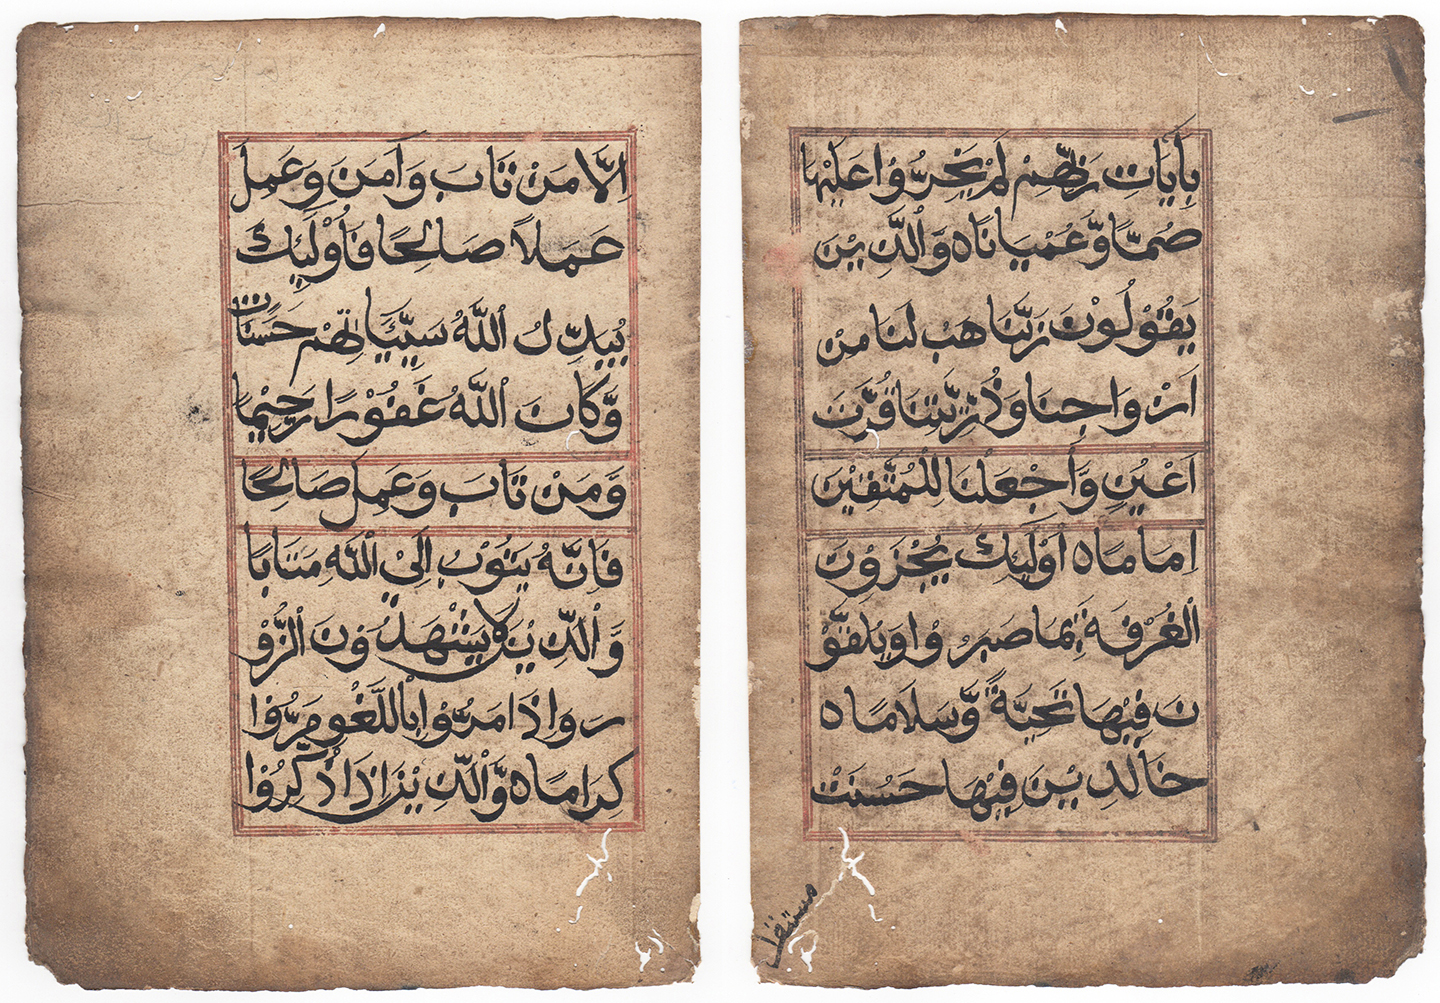 اِلَّا مَنْ تَابَ وَاٰمَنَ وَعَمِلَ
عَمَلًا صَالِحًا فَاُوْلَٰٓئِكَ
يُبَدِّلُ اللّٰهُ سَيِّئَاتِهِمْ حَسَنَاتٍ
وَّكَانَ اللّٰهُ غَفُوْرًا رَّحِيْمًا
وَّمَنْ تَابَ وَعَمِلَ صَالِحًا
فَاِنَّهُ يَتُوْبُ اِلَيْ اللّٰهِ مَتَابًا
وَّالَّذِيْنَ لَا يَشْهَدُوْنَ الزُّوْ
رَ وَاِذَا مَرُّوْا بِاللَّغْوِ مَرُّوْا
كِرَامًا ه وَّالَّذِيْنَ اِذَا ذُكِّرُوْا
بِاٰيَاتِ رَبِّهِمْ لَمْ يَخِرُّوْا عَلَيْهَا
صُمًّا وَّعُمْيَانًا ه وَّالَّذِيْنَ
يَقُوْلُوْنَ رَبَّنَا هَبْ لَنَا مِنْ
اَزْوَاجِنَا وَذُرِّيَّتِنَا قُرَّتَ
اَعْيُنٍ وَّاجْعَلْنَا لِلْمُتَّقِيْنَ
اِمَامًا ه اُوْلَٰٓئِكَ يُجْزَوْنَ
الْغُرْفَةَ بِمَا صَبَرُوْا وَيُلَقَّوْ
نَ فِيْهَا تَحِيَّةً وَّسَلَامًا ه
خَالِدِيْنَ فِيْهَا حَسُنَتْ
مستقرا